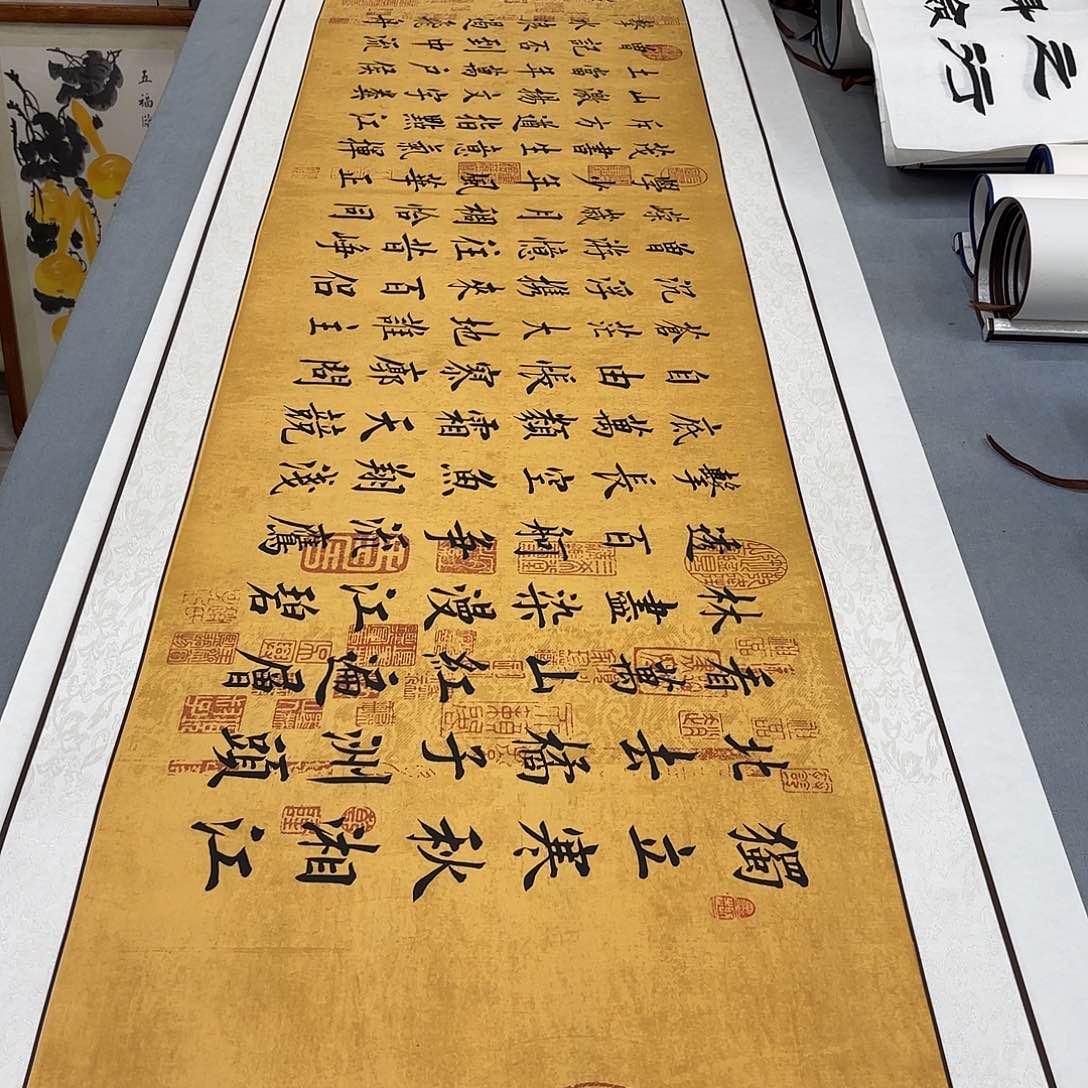 獨立寒秋湘江
北去橘子洲頭
看萬山紅遍層
林盡染漫江碧
透百舸爭流鷹
擊長空魚翔淺
底萬類霜天競
自由悵寥廓問
蒼茫大地誰主
沉浮攜來百侶
曾游憶往昔崢
嶸歲月稠恰同
學少年風華正
茂書生意氣揮
斥方遒指點江
山激揚文字糞
土當年萬户侯
曾記否到中流
擊水浪遏飛舟
五福
之
行